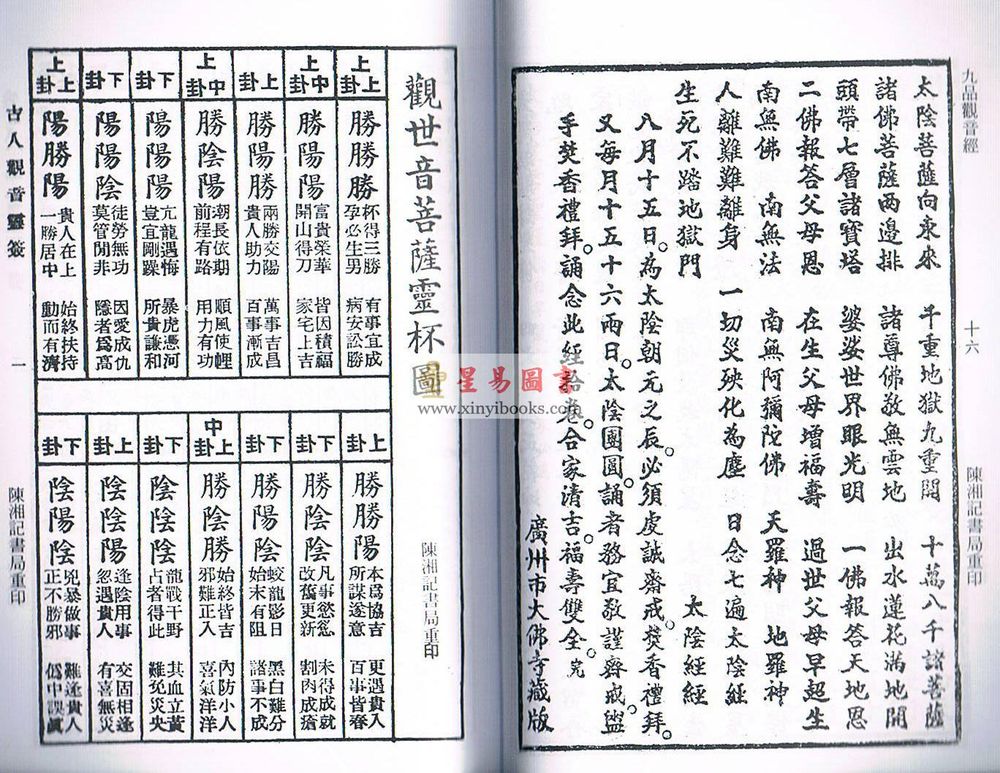 九品觀音經
十六
陳湘記書局重印
太陰菩薩向東來 千重地獄九重開 十萬八千諸菩薩
諸佛菩薩両邊排 諸尊佛敬無雲地 出水蓮花滿地開
頭帶七層諸寶塔 婆娑世界眼光明 一佛報答天地恩
二佛報答父母恩 在生父母增福壽 過世父母早超生
南無佛 南無法 南無阿彌陀佛 天羅神 地羅神
人離難難離身 一切災殃化為塵 日念七遍太陰經
生死不踏地獄門 太陰經經
八月十五日。為太陰朝元之辰。必須虔誠齋戒。焚香禮拜。
又每月十五十六兩日。太陰團圓。誦者務宜敬謹齋戒盥
手焚香禮拜。誦念此經拾卷。合家清吉。福壽雙全。完
廣州市大佛寺藏版
觀世音菩薩靈杯圖
陳湘記書局重印
上上卦
勝勝勝
杯得三勝 有事宜成
孕必生男 病安訟勝
上中卦
勝陽陽
富貴榮華 皆因積福
開山得刀 家宅上吉
上卦
勝勝陽
兩勝交陽 萬事吉昌
貴人助力 百事漸成
上中卦
勝陰陽
潮長依期 順風使帆
前程有路 用力有功
下卦
陽陽陽
亢龍遇悔 暴虎憑河
豈宜剛躁 所貴謙和
下卦
陽陽陰
徒勞無功 因愛成仇
莫管閒非 隱者為高
上上卦
陽勝陽
貴人在上 始終扶持
一勝居中 動而有濟
上卦
勝勝陽
本為協吉 更遇貴人
所謀遂意 百事皆春
下卦
勝陰陰
凡事慾忽 未得成就
改舊更新 割肉成瘡
下卦
勝陽陰
蛟龍影日 黑白難分
始末有阻 諸事不成
中上卦
勝陰勝
始終皆吉 內防小人
邪難正入 喜氣洋洋
下卦
陰陰陰
龍戰于野 其血立黃
占者得此 難免災央
上卦
陰陰陽
逢陰用事 交固相逢
忽遇貴人 有喜無災
下卦
陰陽陰
兇暴做事 難逢貴人
正不勝邪 偽中誤真
古人觀音靈簽
一
陳湘記書局重印
星易圖書
www.xinyibooks.com